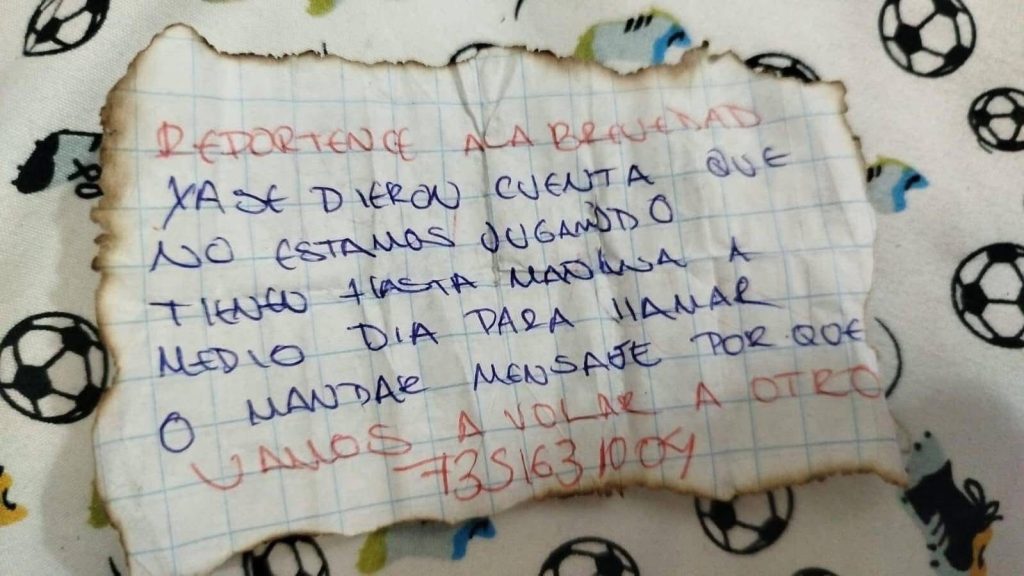 REPORTENCE ALA BREVEDAD
YA SE DIERON CUENTA QUE
NO ESTAMOS JUGANDO
TIENEN HASTA MAÑANA A
MEDIO DIA PARA LLAMAR
O MANDAR MENSAJE POR QUE
VAMOS A VOLAR A OTRO
7351631004